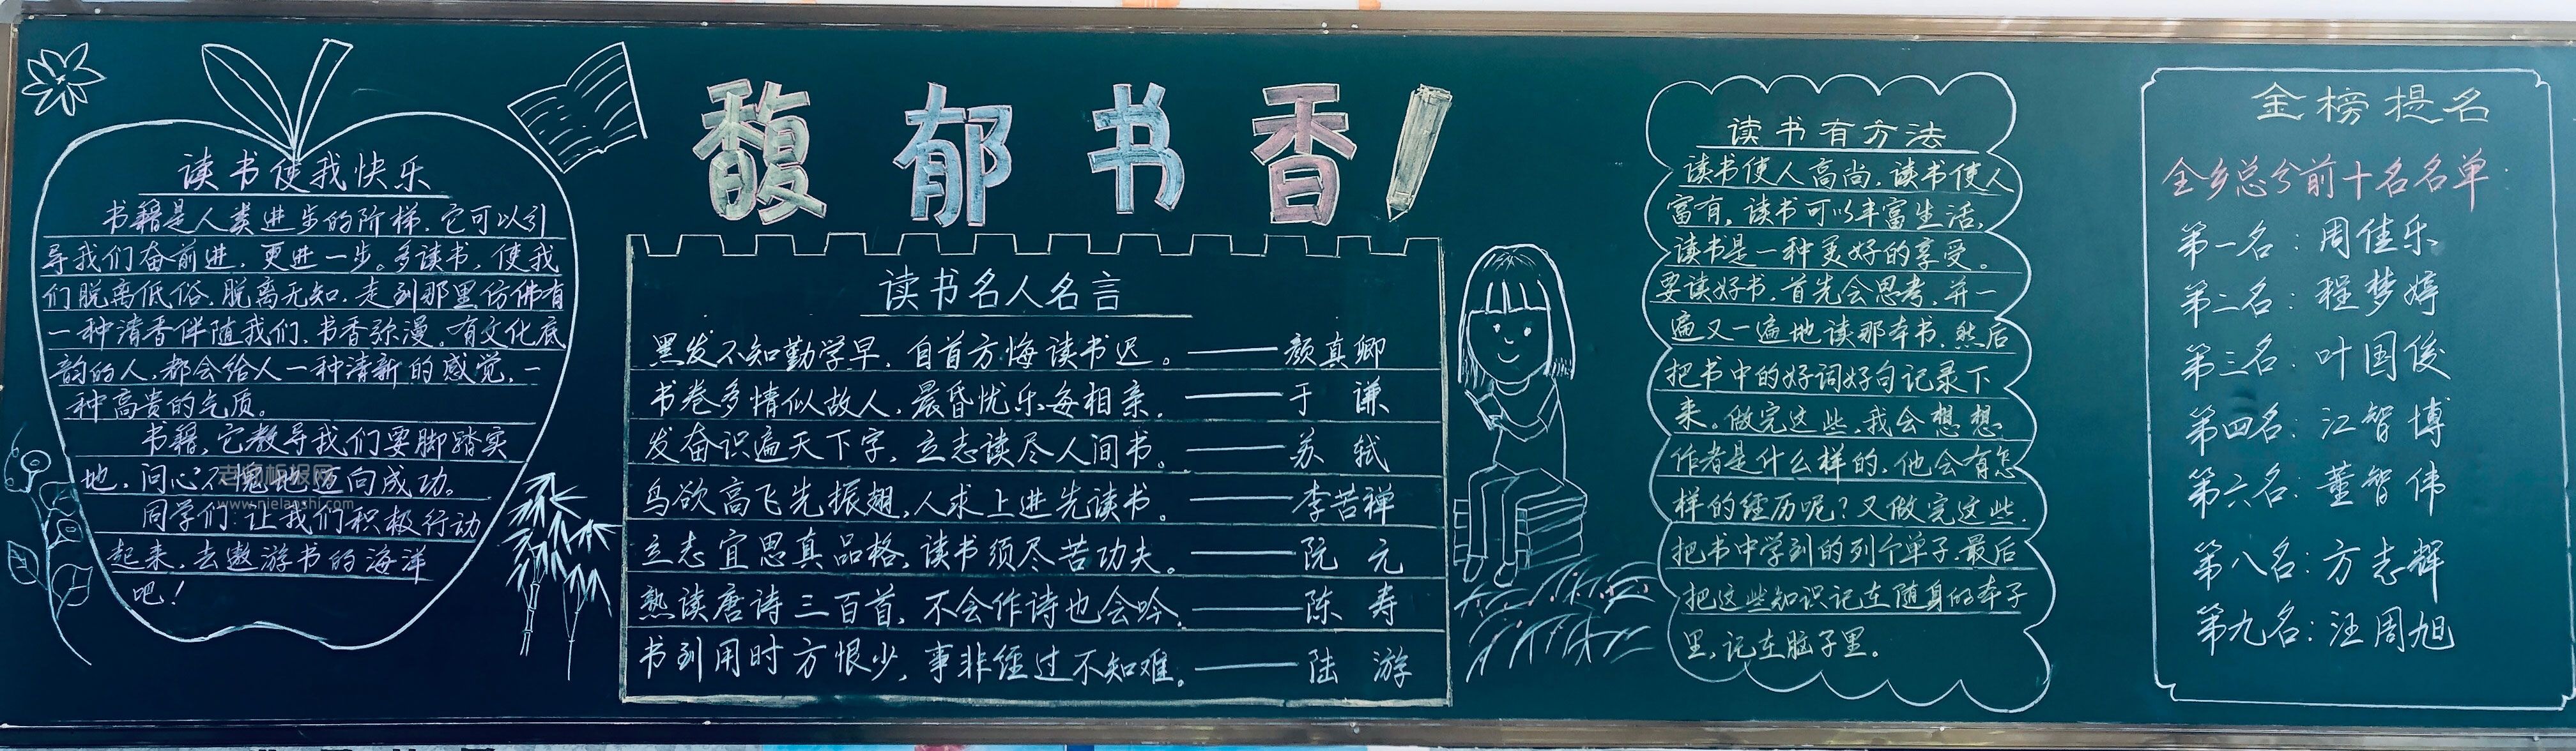 馥郁书香
读书使我快乐
书籍是人类进步的阶梯，它可以引
导我们奋前进，更进一步。多读书，使我
们脱离低俗，脱离无知，走到那里仿佛有
一种清香伴随我们，书香弥漫。有文化底
韵的人，都会给人一种清新的感觉，一
种高贵的气质。
书籍，它教导我们要脚踏实
地，问心不愧地迈向成功。
同学们：让我们积极行动
起来，去遨游书的海洋
吧！
老师板报网
www.nielaoshi.com
读书名人名言
黑发不知勤学早，自首方悔读书迟。——颜真卿
书卷多情似故人，晨昏忧乐每相亲。——于谦
发奋识遍天下字，立志读尽人间书。——苏轼
鸟欲高飞先振翅，人求上进先读书。——李苦禅
立志宜思真品格，读书须尽苦功夫。——阮元
熟读唐诗三百首，不会作诗也会吟。——陈寿
书到用时方恨少，事非经过不知难。——陆游
读书有方法
读书使人高尚，读书使人
富有，读书可以丰富生活，
读书是一种美好的享受。
要读好书，首先会思考，并一
遍又一遍地读那本书，然后
把书中的好词好句记录下
来。做完这些，我会想想
作者是什么样的，他会有怎
样的经历呢？又做完这些，
把书中学到的列个单子，最后
把这些知识记在随身的本子
里，记在脑子里。
金榜提名
全乡总分前十名名单：
第一名：周佳乐
第二名：程梦婷
第三名：叶国俊
第四名：江智博
第六名：董智伟
第八名：方志辉
第九名：汪周旭